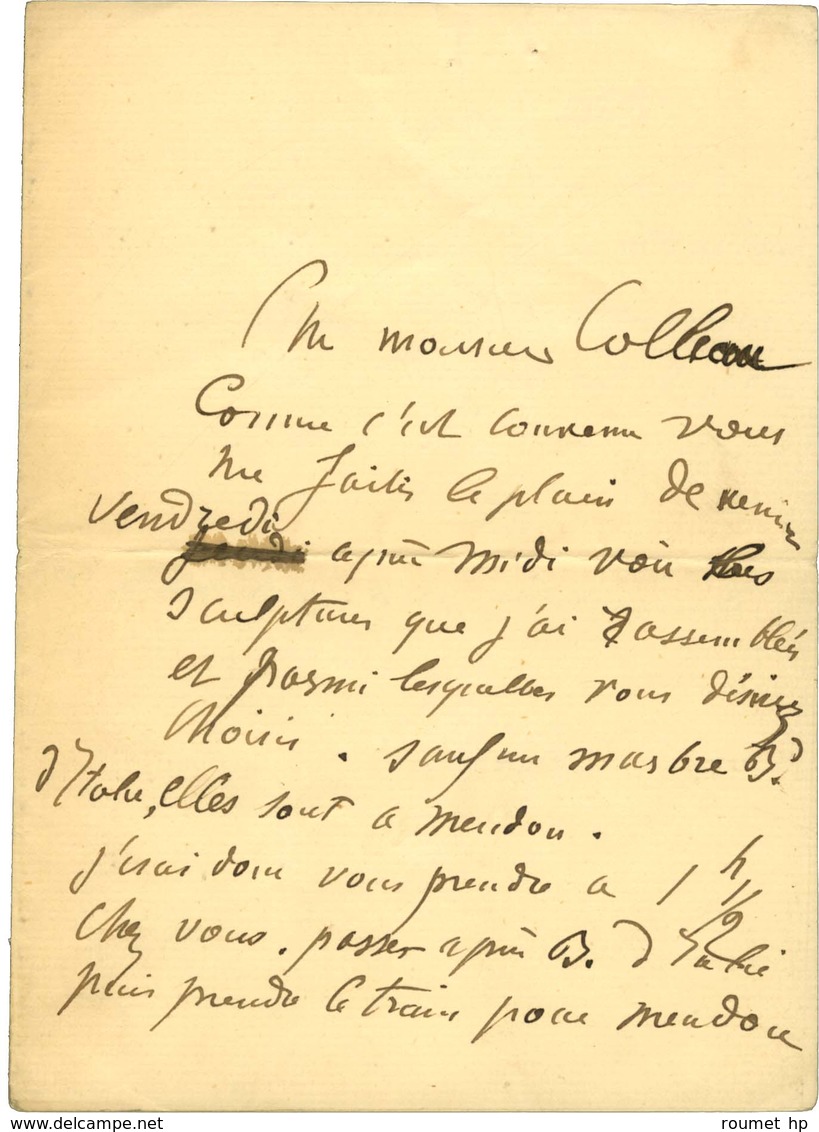 monsieur Colleau
Comme c'est convenu vous
me faites le plaisir de venir
vendredi
jeudi après midi voir les
sculptures que j'ai rassemblés
et parmi lesquelles vous désirez
choisir. sauf un marbre Bd.
d'Italie, elles sont a meudon.
j'irai donc vous prendre a 1 h 1/2
chez vous. passer après B. d Italie
puis prendre le train pour meudon
roumet hp